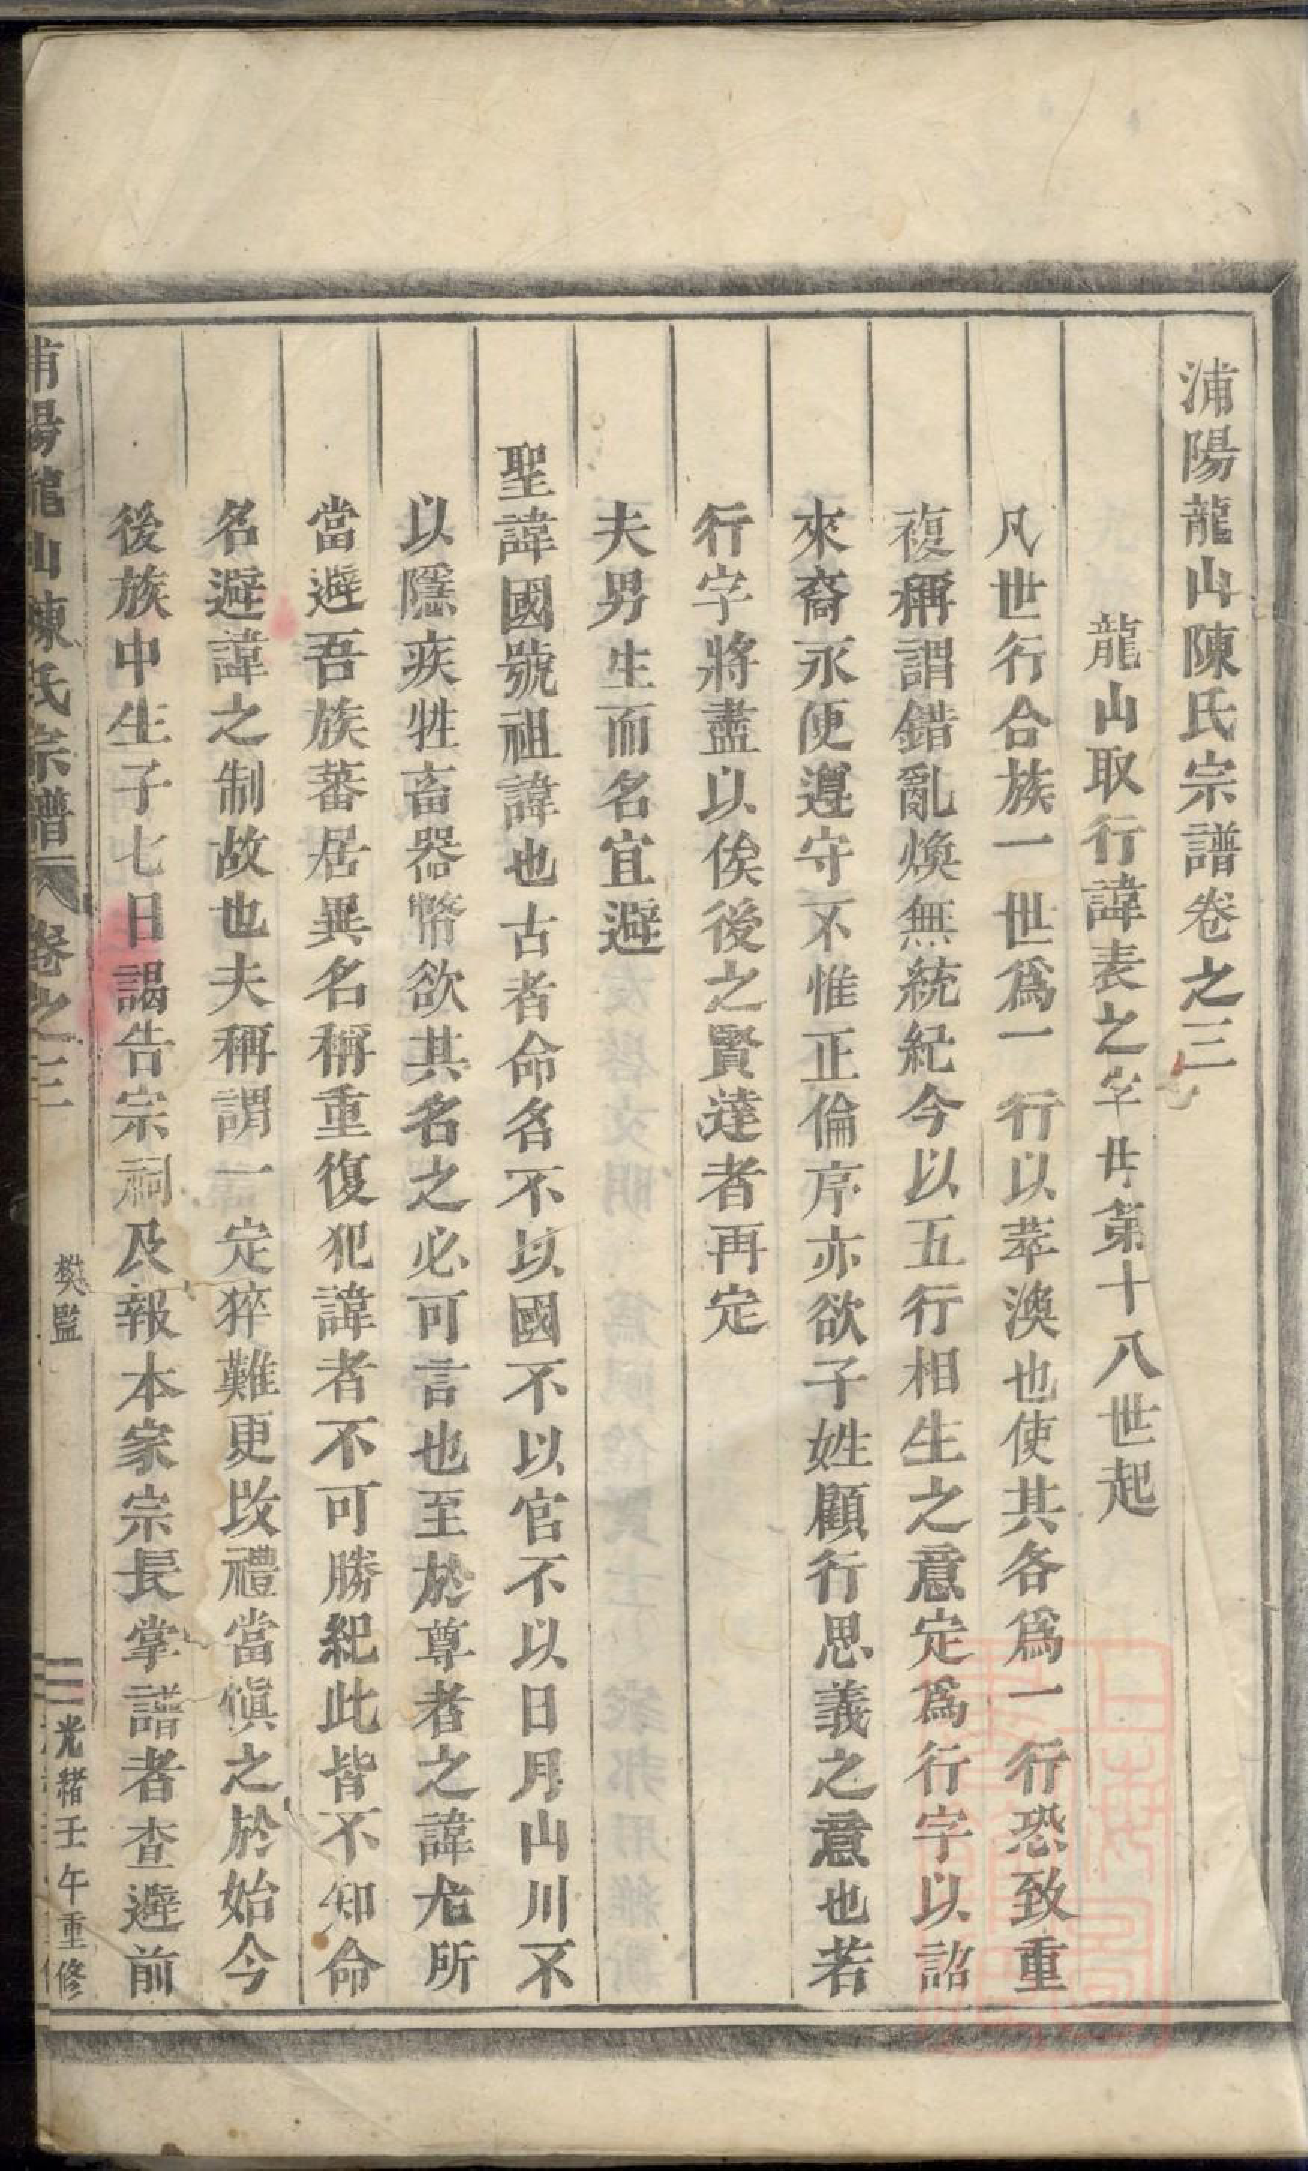 浦陽龍山陳氏宗譜卷之三
龍山取行諱表之字廿第十八世起
凡世行合族一世爲一行以萃渙也使其各爲一行恐致重
複稱謂錯亂煥無統紀今以五行相生之意定爲行字以詔
來裔永便遵守不惟正倫序亦欲子姓顧行思義之意也若
行字將盡以俟後之賢達者再定
夫男生而名宜避
聖諱國號祖諱也古者命名不以國不以官不以日月山川不
以隱疾牲畜器幣欲其名之必可言也至於尊者之諱尤所
當避吾族蕃居異名稱重復犯諱者不可勝紀此皆不知命
名避諱之制故也夫稱謂一定猝難更改禮當慎之於始今
後族中生子七日謁告宗祠及報本家宗長掌譜者查避前
浦陽龍山陳氏宗譜 卷之三 樊監 光緒壬午重修